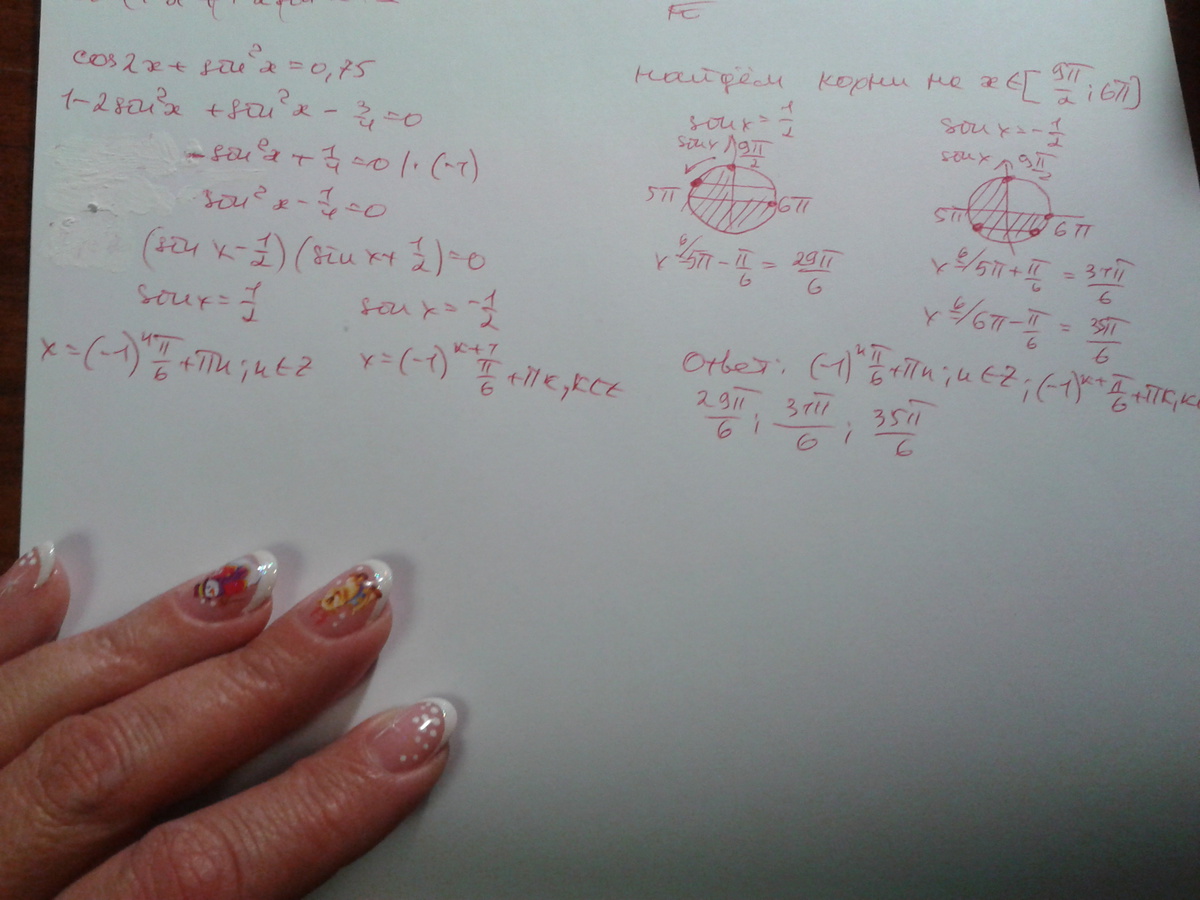 cos2x + sin²x = 0,75
1 - 2sin²x + sin²x - 3/4 = 0
- sin²x + 1/4 = 0 | · (-1)
sin²x - 1/4 = 0
(sin x - 1/2) (sin x + 1/2) = 0
sin x = 1/2 sin x = -1/2
x = (-1)ⁿ π/6 + πn; n ∈ Z x = (-1)ᵏ⁺¹ π/6 + πk, k ∈ Z
Найдём корни на x ∈ [9π/2; 6π]
sin x = 1/2
sin x 9π/2
5π 6π
x = 5π - π/6 = 29π/6
sin x = -1/2
sin x 9π/2
5π 6π
x = 5π + π/6 = 31π/6
x = 6π - π/6 = 35π/6
Ответ: (-1)ⁿ π/6 + πn; n ∈ Z; (-1)ᵏ⁺ π/6 + πk, k
29π/6; 31π/6; 35π/6